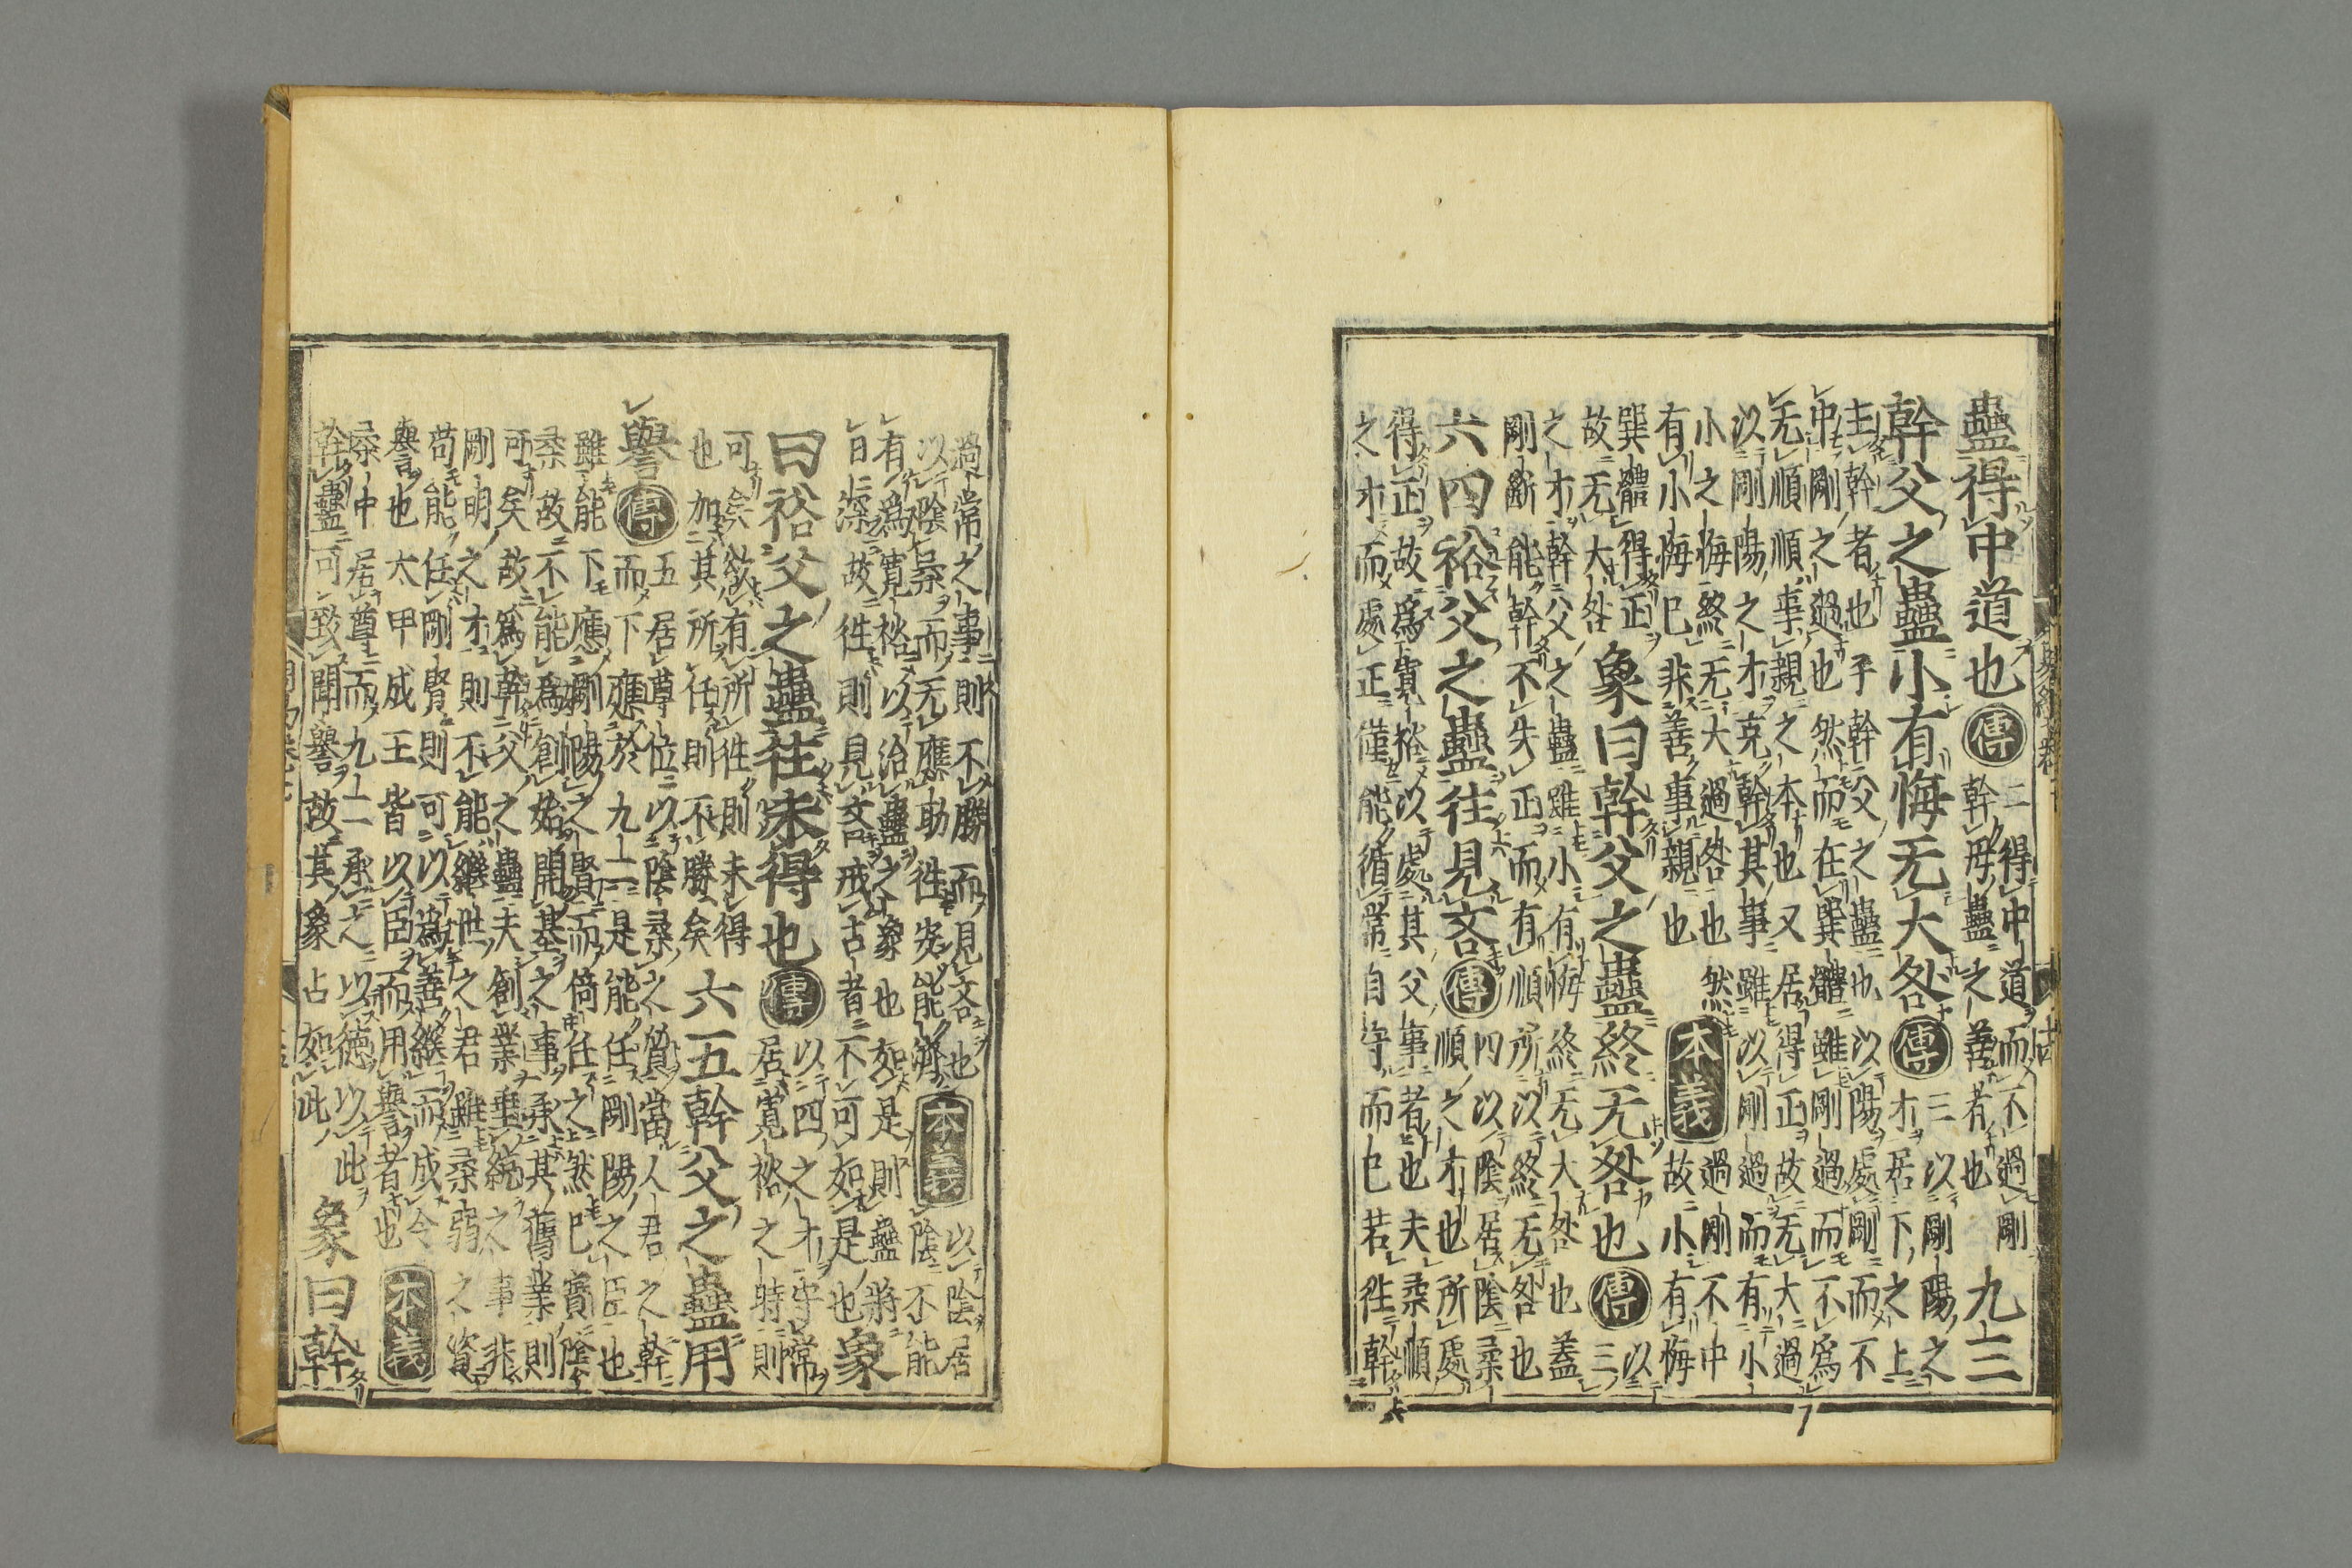 蠱得中道也傳
二得中道而不過剛
幹母蠱之善者也
九三
幹父之蠱小有悔无大咎傳
三以剛陽之
才居下之上
主幹者也子幹父之蠱也以陽處剛而不
中剛之過也然而在巽體雖剛過而不爲
无順順事親之本也又居得正故无大過
以剛陽之才克幹其事雖以剛過而有小
小之悔終无大過咎也然
有小悔已非善事親也
本義
過剛不中
故小有悔
巽體得正
故无大咎
象曰幹父之蠱終无咎也傳
以
三
之才幹父之蠱雖小有悔終无大咎也蓋
剛斷能幹不失正而有順所以終无咎也
六四裕父之蠱往見吝傳
四以陰居陰柔
順之才也所處
得正故爲寬裕以處其父事者也夫柔順
之才而處正僅能循常自守而已若往幹
過常之事則不勝而見吝也
以陰柔而无應助往安能濟
本義
以陰居
陰不能
有爲寬裕以治蠱之象也如是則蠱將
日深故往則見吝戒占者不可如是也
象
曰裕父之蠱往未得也傳
以四之才守常
居寬裕之時則
可矣欲有所往則未得
也加其所任則不勝矣
六五幹父之蠱用
譽傳
五居尊位以陰柔之質當人君之幹
而下應於九二是能任剛陽之臣也
雖能下應剛陽之賢而倚任之然已實陰
柔故不能爲創始開基之事承其舊業則
可矣故爲幹父之蠱夫創業垂統之事非
剛明之才則不能繼世之君雖柔弱之資
苟能任剛賢則可以爲善繼而成令
譽也太甲成王皆以臣而用譽者也
本義
柔中居尊而九二承之以德以此
幹蠱可致聞譽故其象占如此
象曰幹